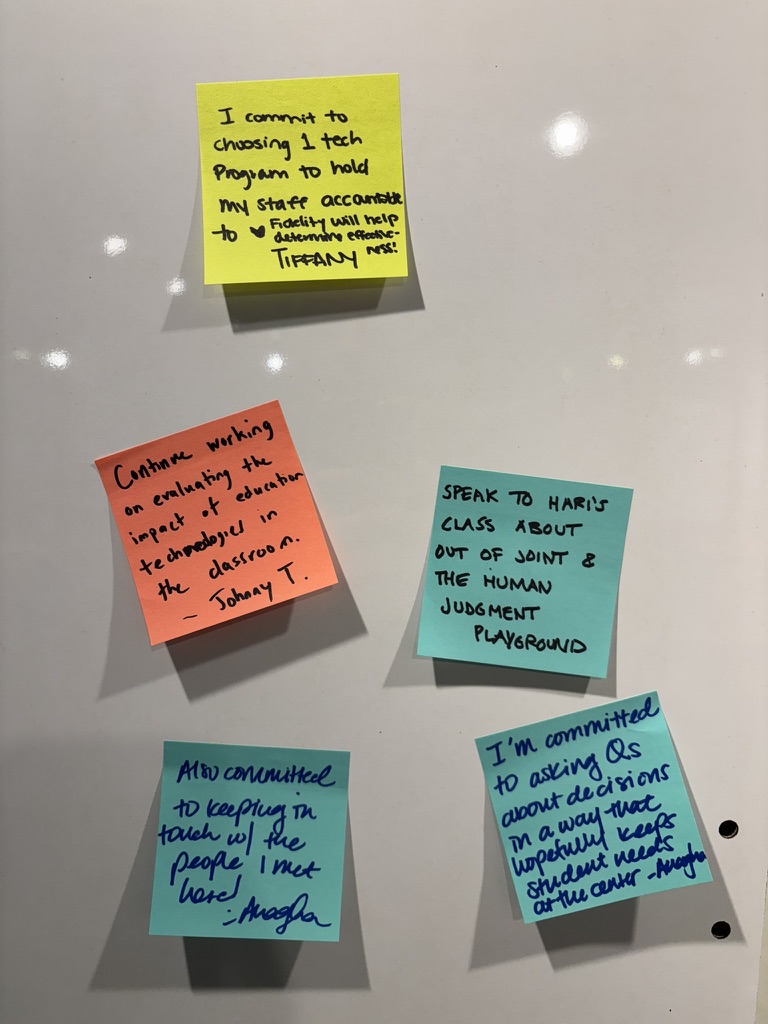 I commit to
choosing 1 tech
Program to hold
my staff accountable
to ♥ Fidelity will help
determine effective-
ness!
TIFFANY
Continue working
on evaluating the
impact of education
technologies in
the classroom.
~ Johnny T.
SPEAK TO HARI'S
CLASS ABOUT
OUT OF JOINT &
THE HUMAN
JUDGMENT
PLAYGROUND
Also committed
to keeping in
touch w/ the
people I met
here!
- Anagha
I'm committed
to asking Qs
about decisions
in a way that
hopefully keeps
student needs
at the center - Anagha